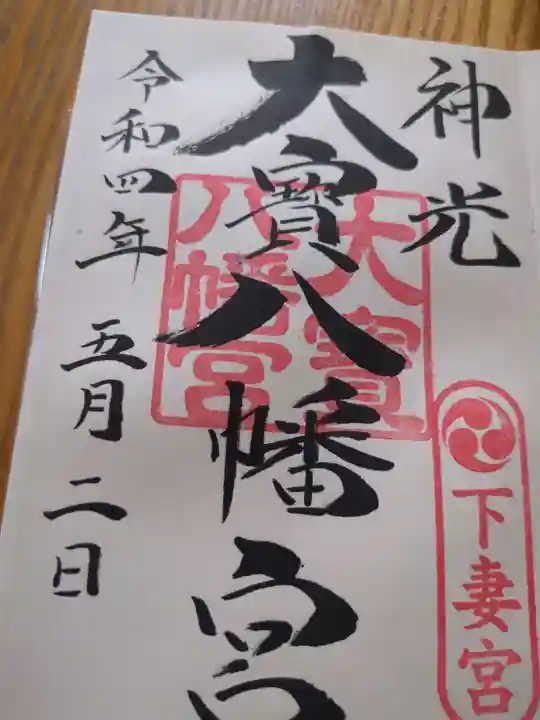 神光
下妻宮
大寳八幡宮
大寳
八幡宮
令和四年
五月二日